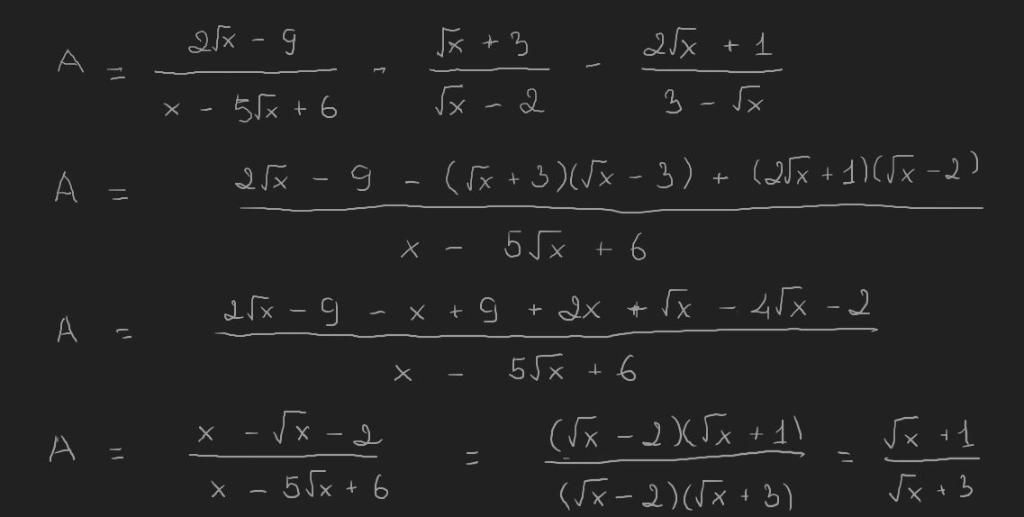 A = (2√x - 9)/(x - 5√x + 6) - (√x + 3)/(√x - 2) - (2√x + 1)/(3 - √x)
A = (2√x - 9 - (√x + 3)(√x - 3) + (2√x + 1)(√x - 2))/(x - 5√x + 6)
A = (2√x - 9 - x + 9 + 2x + √x - 4√x - 2)/(x - 5√x + 6)
A = (x - √x - 2)/(x - 5√x + 6) = ((√x - 2)(√x + 1))/((√x - 2)(√x + 3)) = (√x + 1)/(√x + 3)